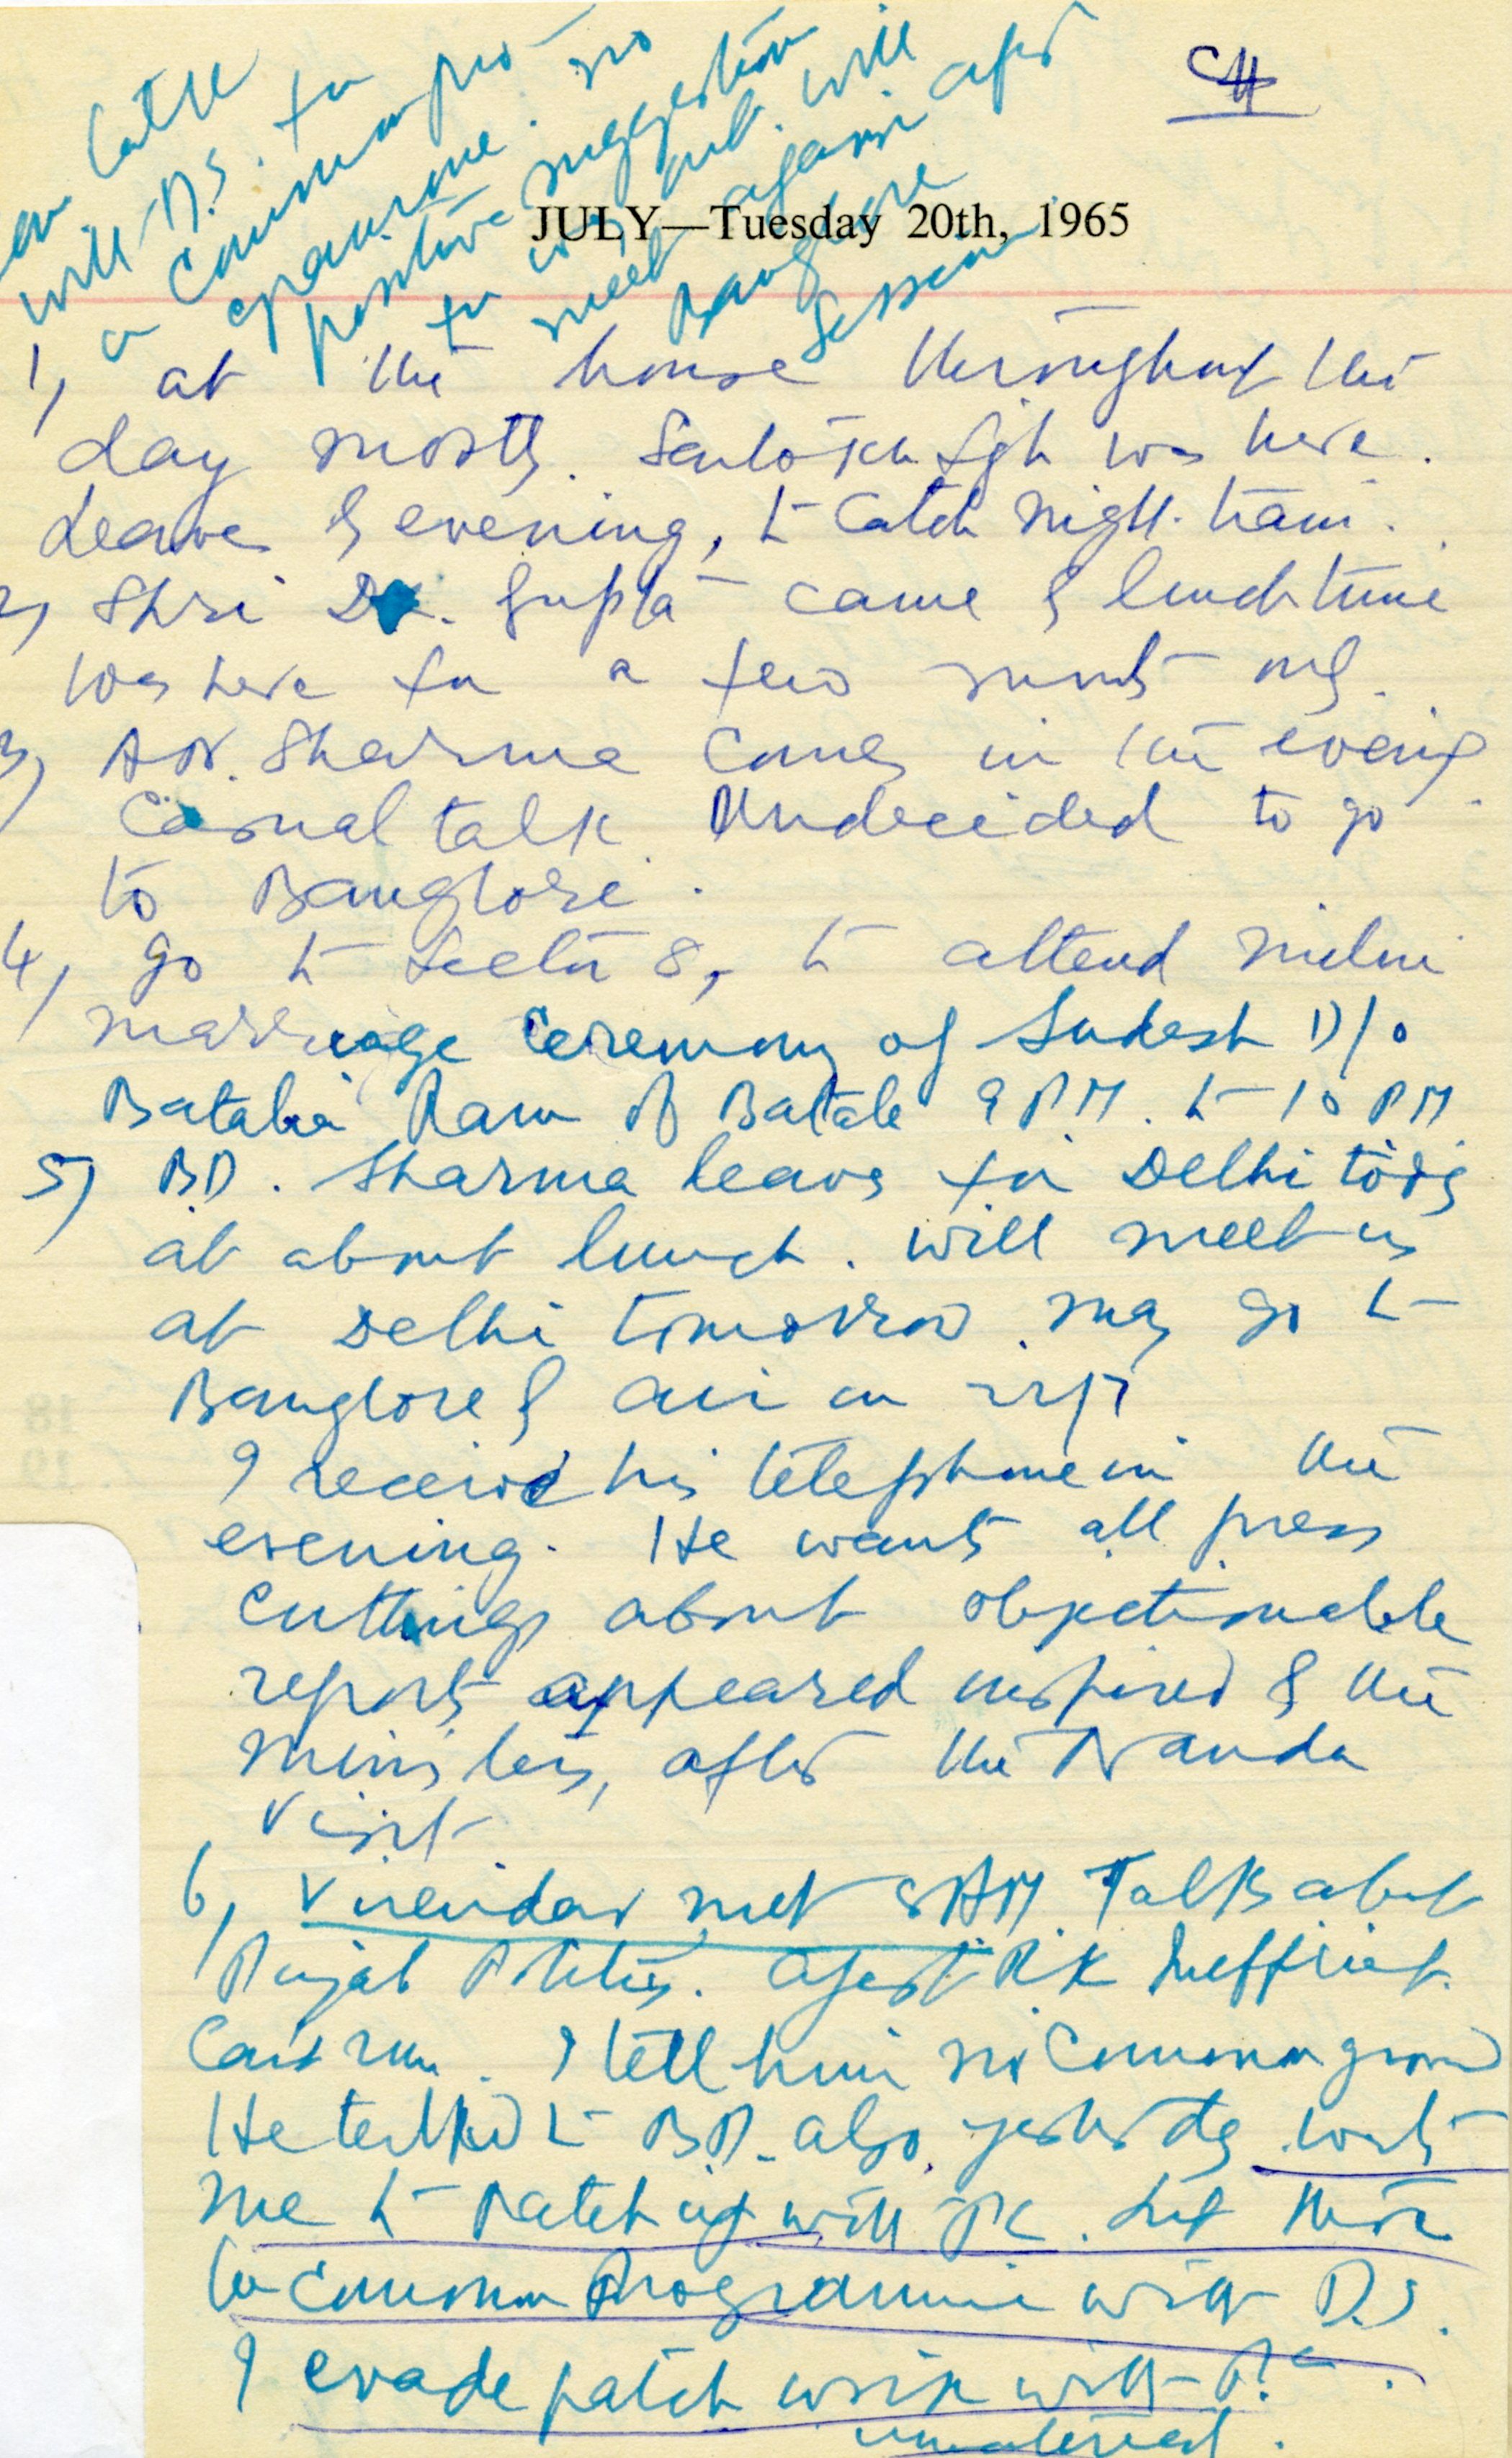 CH
JULY—Tuesday 20th, 1965
talk
with D.S. for
a common pro
gramme. no
positive suggestion
to us but will
meet again after
Banglore
Session
1) at the house throughout the
day mostly. Santokh Sgh was here.
Leaves by evening, to catch night train.
2) Shri D. Gupta came by lunch time
was here for a few minuts only.
3) A.N. Sharma comes in the evening
Casual talk. Undecided to go
to Banglore.
4) go to Sector 8, to attend milni
marriage ceremony of Sudesh D/o
Batalia Ram of Batala 9 PM. to 10 PM
5) BD. Sharma leaves for Delhi today
at about lunch. will meet us
at Delhi tomorrow. may go to
Banglore by air on 22/7
I receive his telephone in the
evening. He wants all press
cuttings about objectionable
reports appeared inspired by the
Ministers, after the Nanda
Visit
6) Virendar met 8 AM. Talks about
Punjab Politics. against RK
I tell him no common ground
He talked to B.D. also yesterday wants
me to patch up with RK. but there
be common Programme with D.S.
I evade patch work with